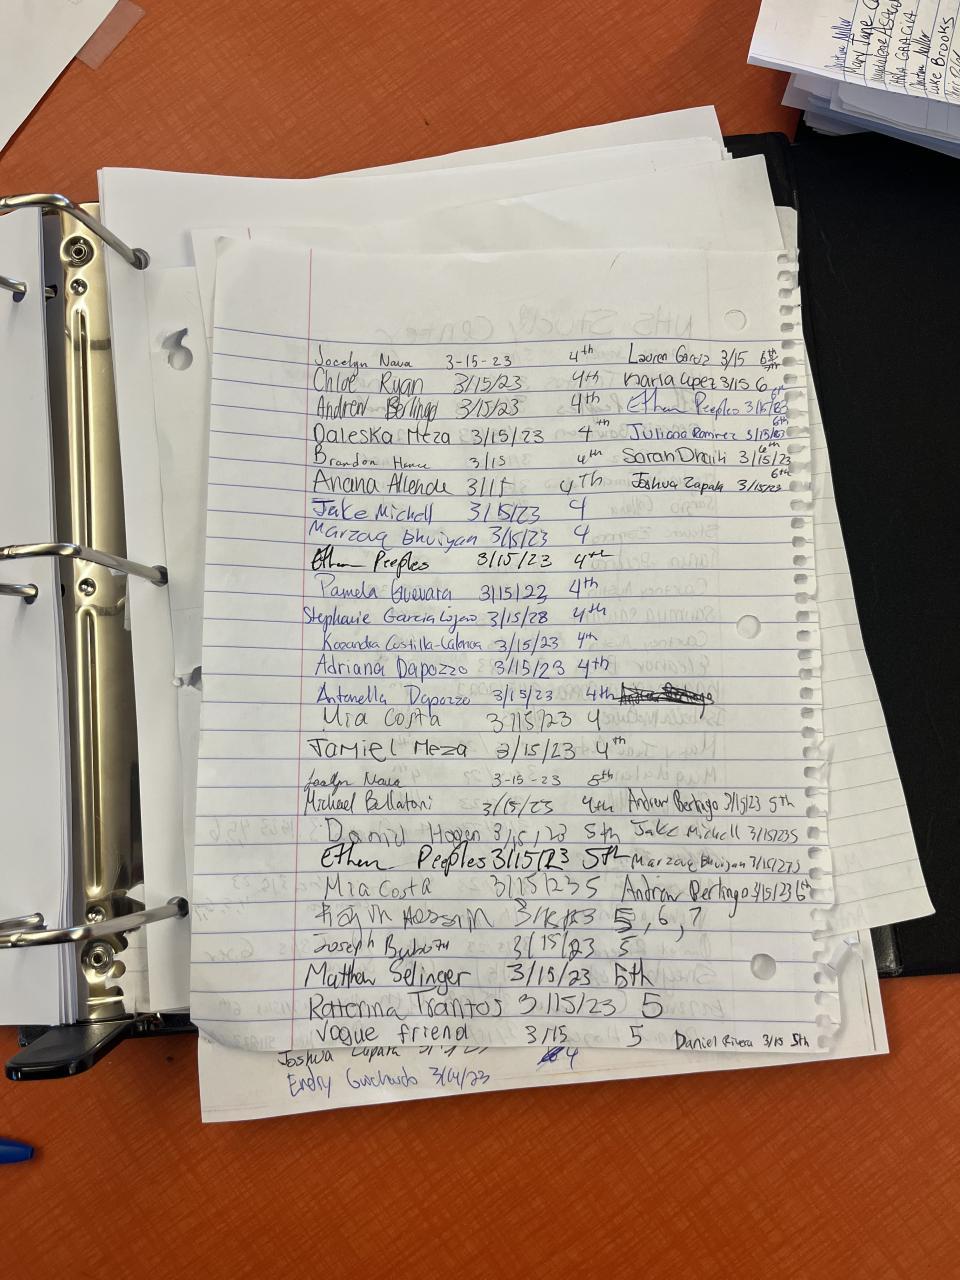 Mary Jane
Luke Brooks
NHS Study Center
Jocelyn Nava 3-15-23 4th Lauren Garcz 3/15 6th
Chloe Ryan 3/15/23 4th Karla Lopez 3/15 6
Andrew Berlingo 3/15/23 4th Ethan Peeples 3/15/23 6th
Daleska Meza 3/15/23 4th Juliana Ramirez 3/15/23 6th
Brandon 3/15 4th Sarah Dhaiti 3/15/23 6th
Ariana Allende 3/15 4th Joshua Zapata 3/15/23 6th
Jake Michell 3/15/23 4
Marzaq Bhuiyan 3/15/23 4
Ethan Peeples 3/15/23 4th
Pamela Guevara 3/15/23 4th
Stephanie Garcia Lojano 3/15/28 4th
Kazandra Costilla-Calenoa 3/15/23 4th
Adriana Dapozzo 3/15/23 4th
Antonella Dapozzo 3/15/23 4th
Mia Costa 3/15/23 4
Jamiel Meza 3/15/23 4th
Jocelyn Nava 3-15-23 5th
Michael Bellatoni 3/15/23 4th Andrew Berlingo 3/15/23 5th
Daniel Hogen 3/15/23 5th Jake Michell 3/15/23 5
Ethan Peeples 3/15/23 5th Marzaq Bhuiyan 3/15/23 5
Mia Costa 3/15/23 5 Andrew Berlingo 3/15/23 6th
Hossain 5, 6, 7
Joseph 3/15/23 5
Matthew Selinger 3/15/23 5th
Katerina Trantos 3/15/23 5
Vogue friend 3/15 5 Daniel Rivera 3/15 5th
Joshua Zapata 4
Endry Guichardo 3/14/23